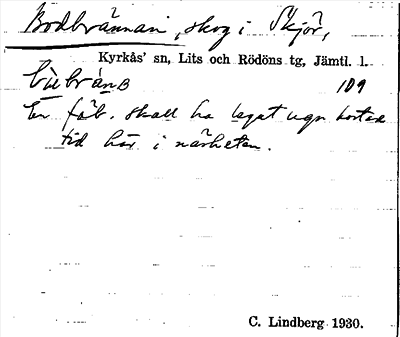 Bodbrännan, skog i Skjör,
Kyrkås' sn, Lits och Rödöns tg, Jämtl. l.
109
En fäb. skall ha legat
tid här i närheten.
C. Lindberg 1930.